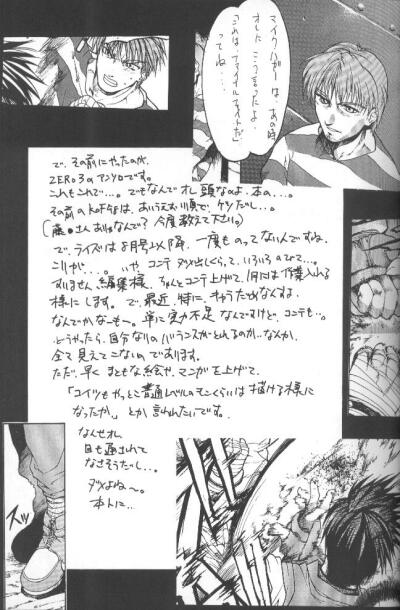 マイクハガーは、あの時
オレに こう言ったよ。
「これは、ファイナルファイトだ」
ってね…。
で、その前にやったのが、
ZERO3のアンソロです。
これもこれで…。でもなんでオレ頭なのよ、本の…。
その前のKOF'98は、あいうえお順で、ケツだし…。
(藤●さんおゆるなんで? 今度教えて下さい。)
で、ライズは8月号以降、一度ものってないんですね。
これが…。いや コンテ ダメ出しくらって、いろいろのびて…。
すいません、編集様、ちゃんとコンテ上げて、1月には原稿入れる
様にします。で、最近、特に、キャラだめなんすよ。
なんでかなーも〜。単に実力不足なんですけど、コンテも…。
どうやったら、自分なりのバランスがとれるのか…なんか、
全て見えてこないのであります。
ただ、早く まともな絵や、マンガを上げて、
「コイツもやっとこ普通レベルのモンくらいは描ける様に
なったか。」とか 言われたいです。
なんせオレ、
目も通されて
なさそうだし…。
ダメよね〜。
本トに…
ズッ